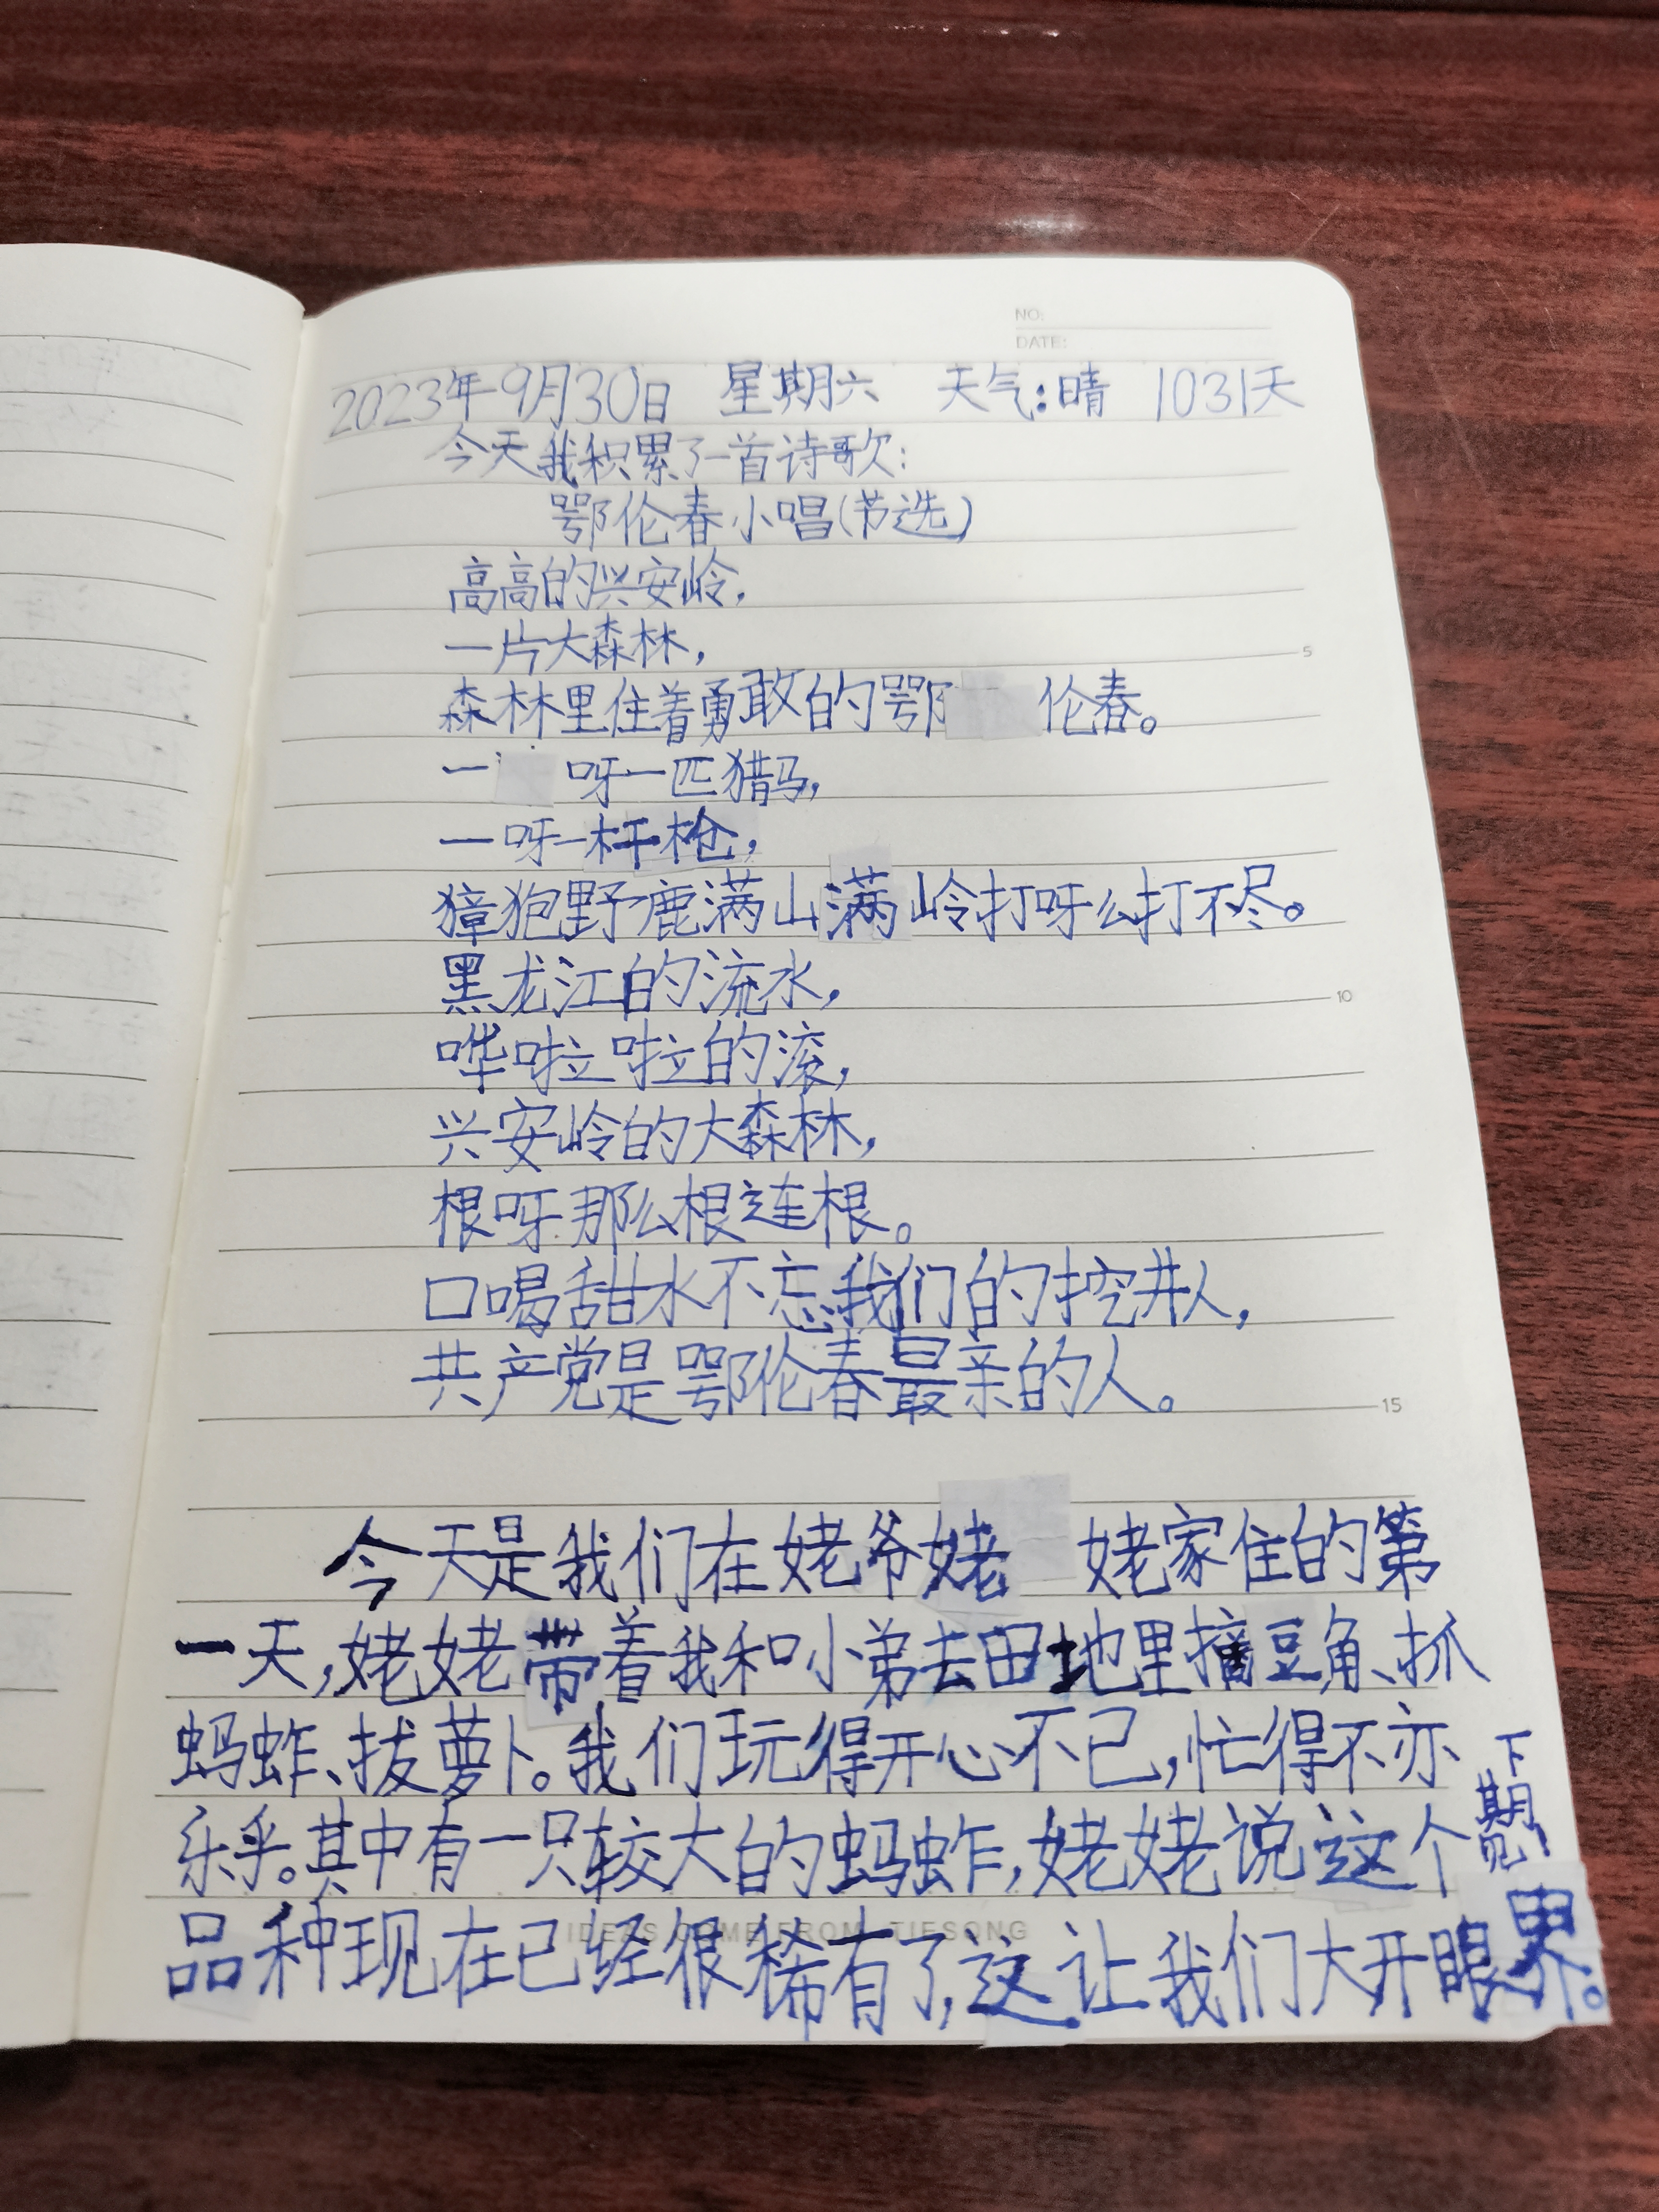 NO:
DATE:
2023年9月30日 星期六 天气:晴 1031天
今天我积累了一首诗歌:
鄂伦春小唱(节选)
高高的兴安岭,
一片大森林,
森林里住着勇敢的鄂伦春。
一呀一匹猎马,
一呀一杆枪,
獐狍野鹿满山满岭打呀么打不尽。
黑龙江的流水,
哗啦啦的滚,
兴安岭的大森林,
根呀那么根连根。
口喝甜水不忘我们的挖井人,
共产党是鄂伦春最亲的人。
今天是我们在姥爷姥姥家住的第
一天,姥姥带着我和小弟去田地里摘豆角、抓
蚂蚱、拔萝卜。我们玩得开心不已,忙得不亦
乐乎。其中有一只较大的蚂蚱,姥姥说这个
品种现在已经很稀有了,这让我们大开眼界。
下期见!
5
10
15
IDEAS COME FROM TIESONG